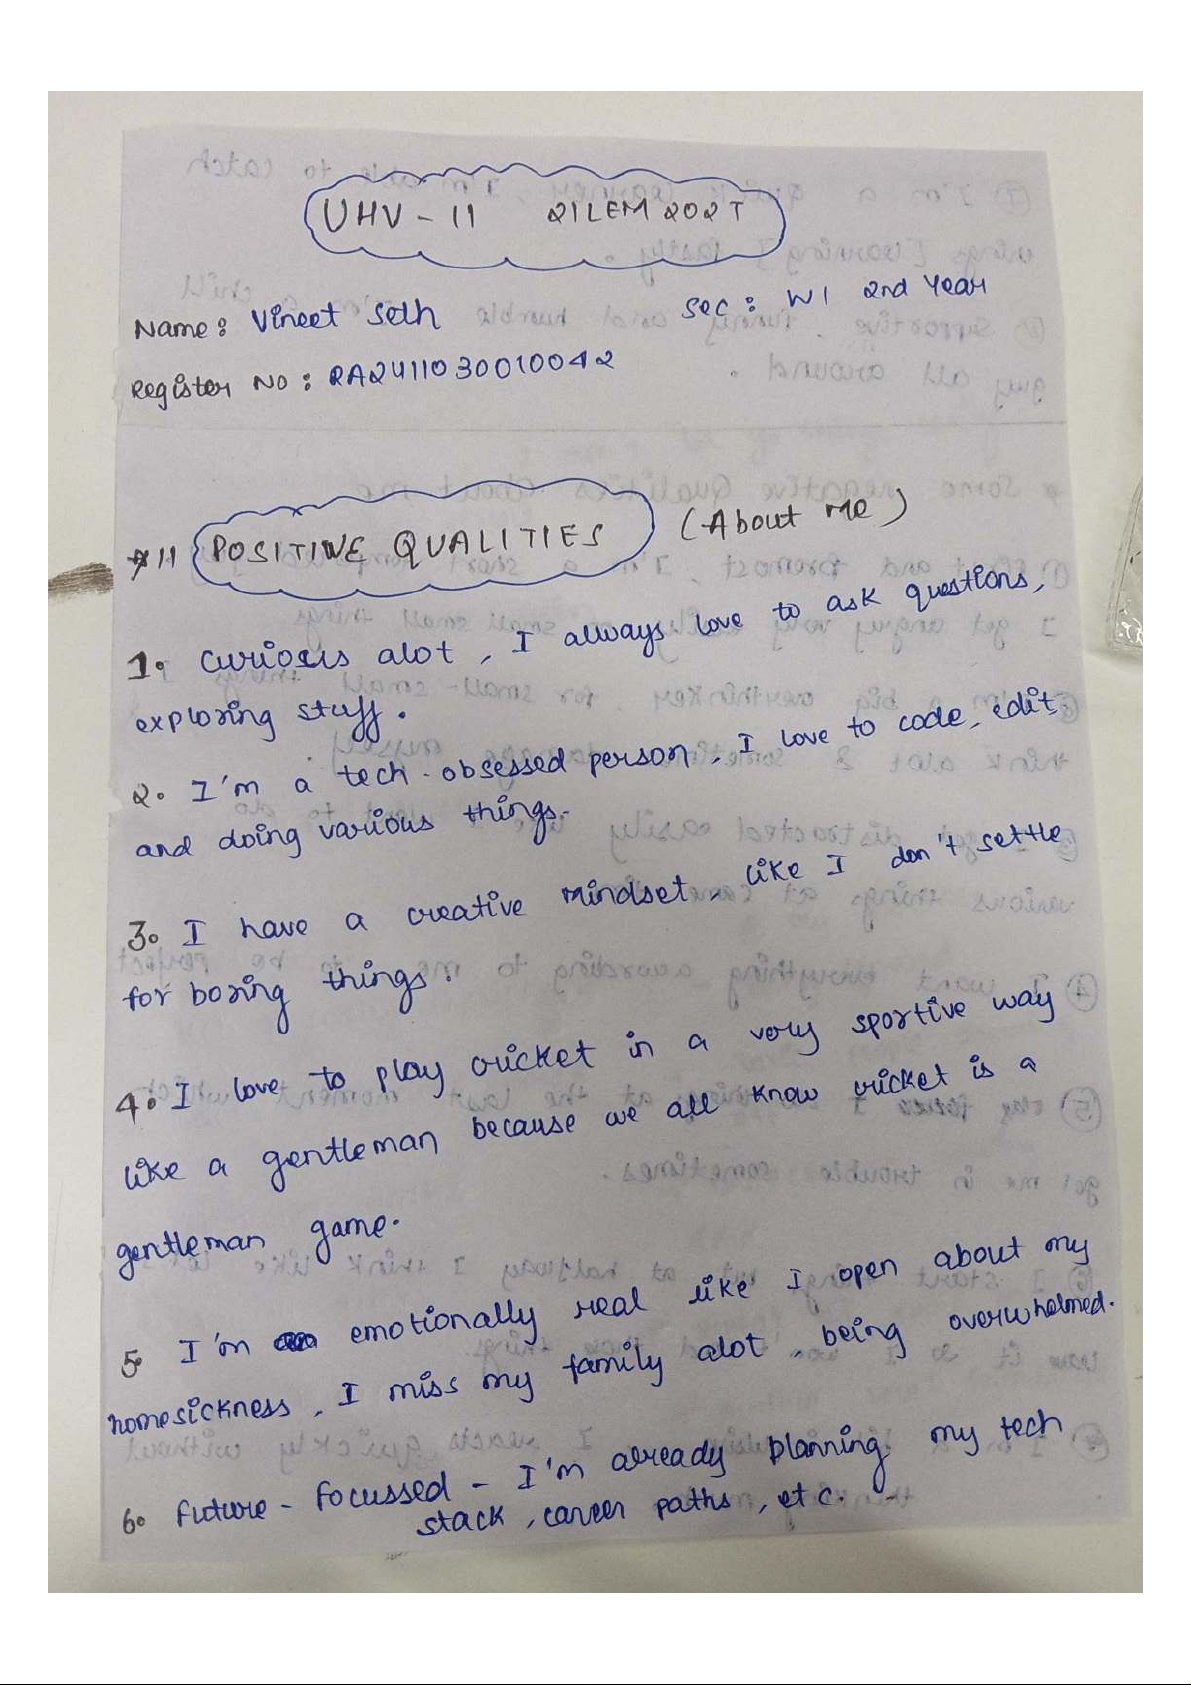 UHV - II 21LEM202T
Name: Vineet Seth Sec: W1 2nd Year
Register No: RA2411030010042
*11 POSITIVE QUALITIES (About me)
1. Curious alot, I always love to ask questions,
exploring stuff.
2. I'm a tech-obsessed person, I love to code, edit
and doing various things.
3. I have a creative mindset, like I don't settle
for boring things.
4. I love to play cricket in a very sportive way
like a gentleman because we all know cricket is a
gentleman game.
5. I'm emotionally real like I open about my
homesickness, I miss my family alot, being overwhelmed.
6. Future - focussed - I'm already planning my tech
stack, career paths, etc.